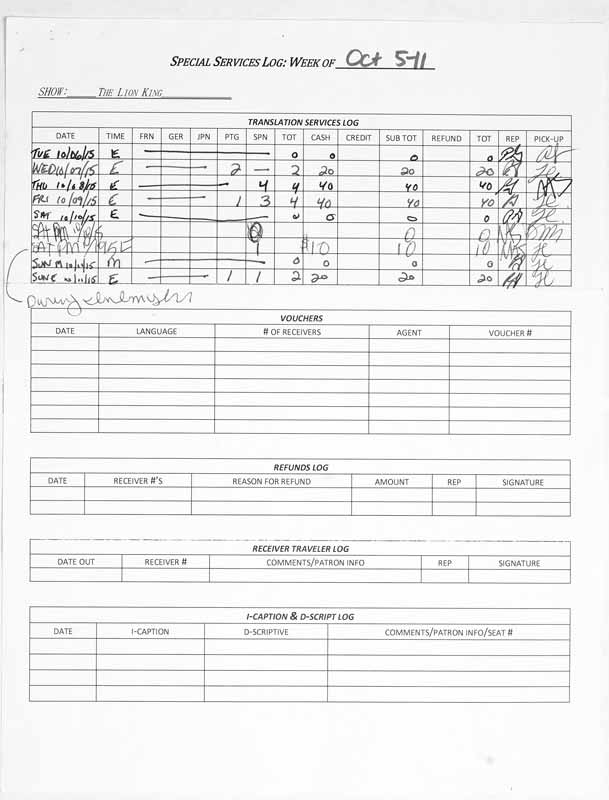 SPECIAL SERVICES LOG: WEEK OF Oct 5-11
SHOW: THE LION KING
TRANSLATION SERVICES LOG
DATE TIME FRN GER JPN PTG SPN TOT CASH CREDIT SUB TOT REFUND TOT REP PICK-UP
TUE 10/06/15 E 0 0 0 0
WED 10/07/15 E 2 — 2 20 20 20
THU 10/08/15 E 4 4 40 40 40
FRI 10/09/15 E 1 3 4 40 40 40
SAT 10/10/15 E 0 0 0 0
SAT 0 0
SAT E 1 $10 10 10
SUN M 10/11/15 M 0 0 0 0
SUN E 10/11/15 E 1 1 2 20 20 20
VOUCHERS
DATE LANGUAGE # OF RECEIVERS AGENT VOUCHER #
REFUNDS LOG
DATE RECEIVER #'S REASON FOR REFUND AMOUNT REP SIGNATURE
RECEIVER TRAVELER LOG
DATE OUT RECEIVER # COMMENTS/PATRON INFO REP SIGNATURE
I-CAPTION & D-SCRIPT LOG
DATE I-CAPTION D-SCRIPTIVE COMMENTS/PATRON INFO/SEAT #